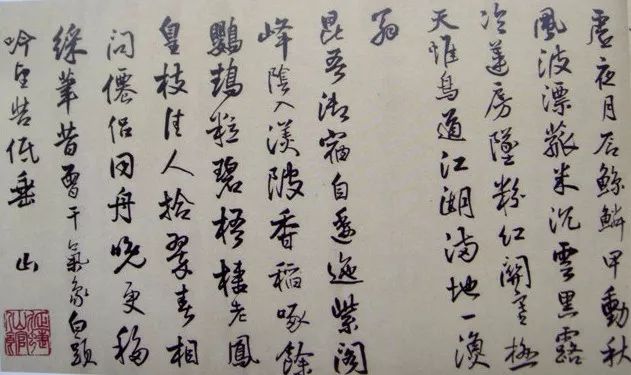 虛夜月石鯨鱗甲動秋
風波漂菰米沉雲黑露
冷蓮房墜粉紅關塞極
天惟鳥道江湖滿地一漁
翁
昆吾御宿自逶迤紫閣
峰陰入渼陂香稻啄餘
鸚鵡粒碧梧棲老鳳
皇枝佳人拾翠春相
問僊侶同舟晚更移
綵筆昔曾干氣象白頭
吟望苦低垂 山